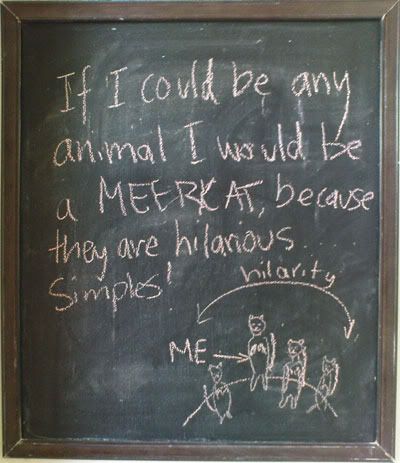 If I could be any
animal I would be
a MEERKAT, because
they are hilarious
simples!
hilarity
ME